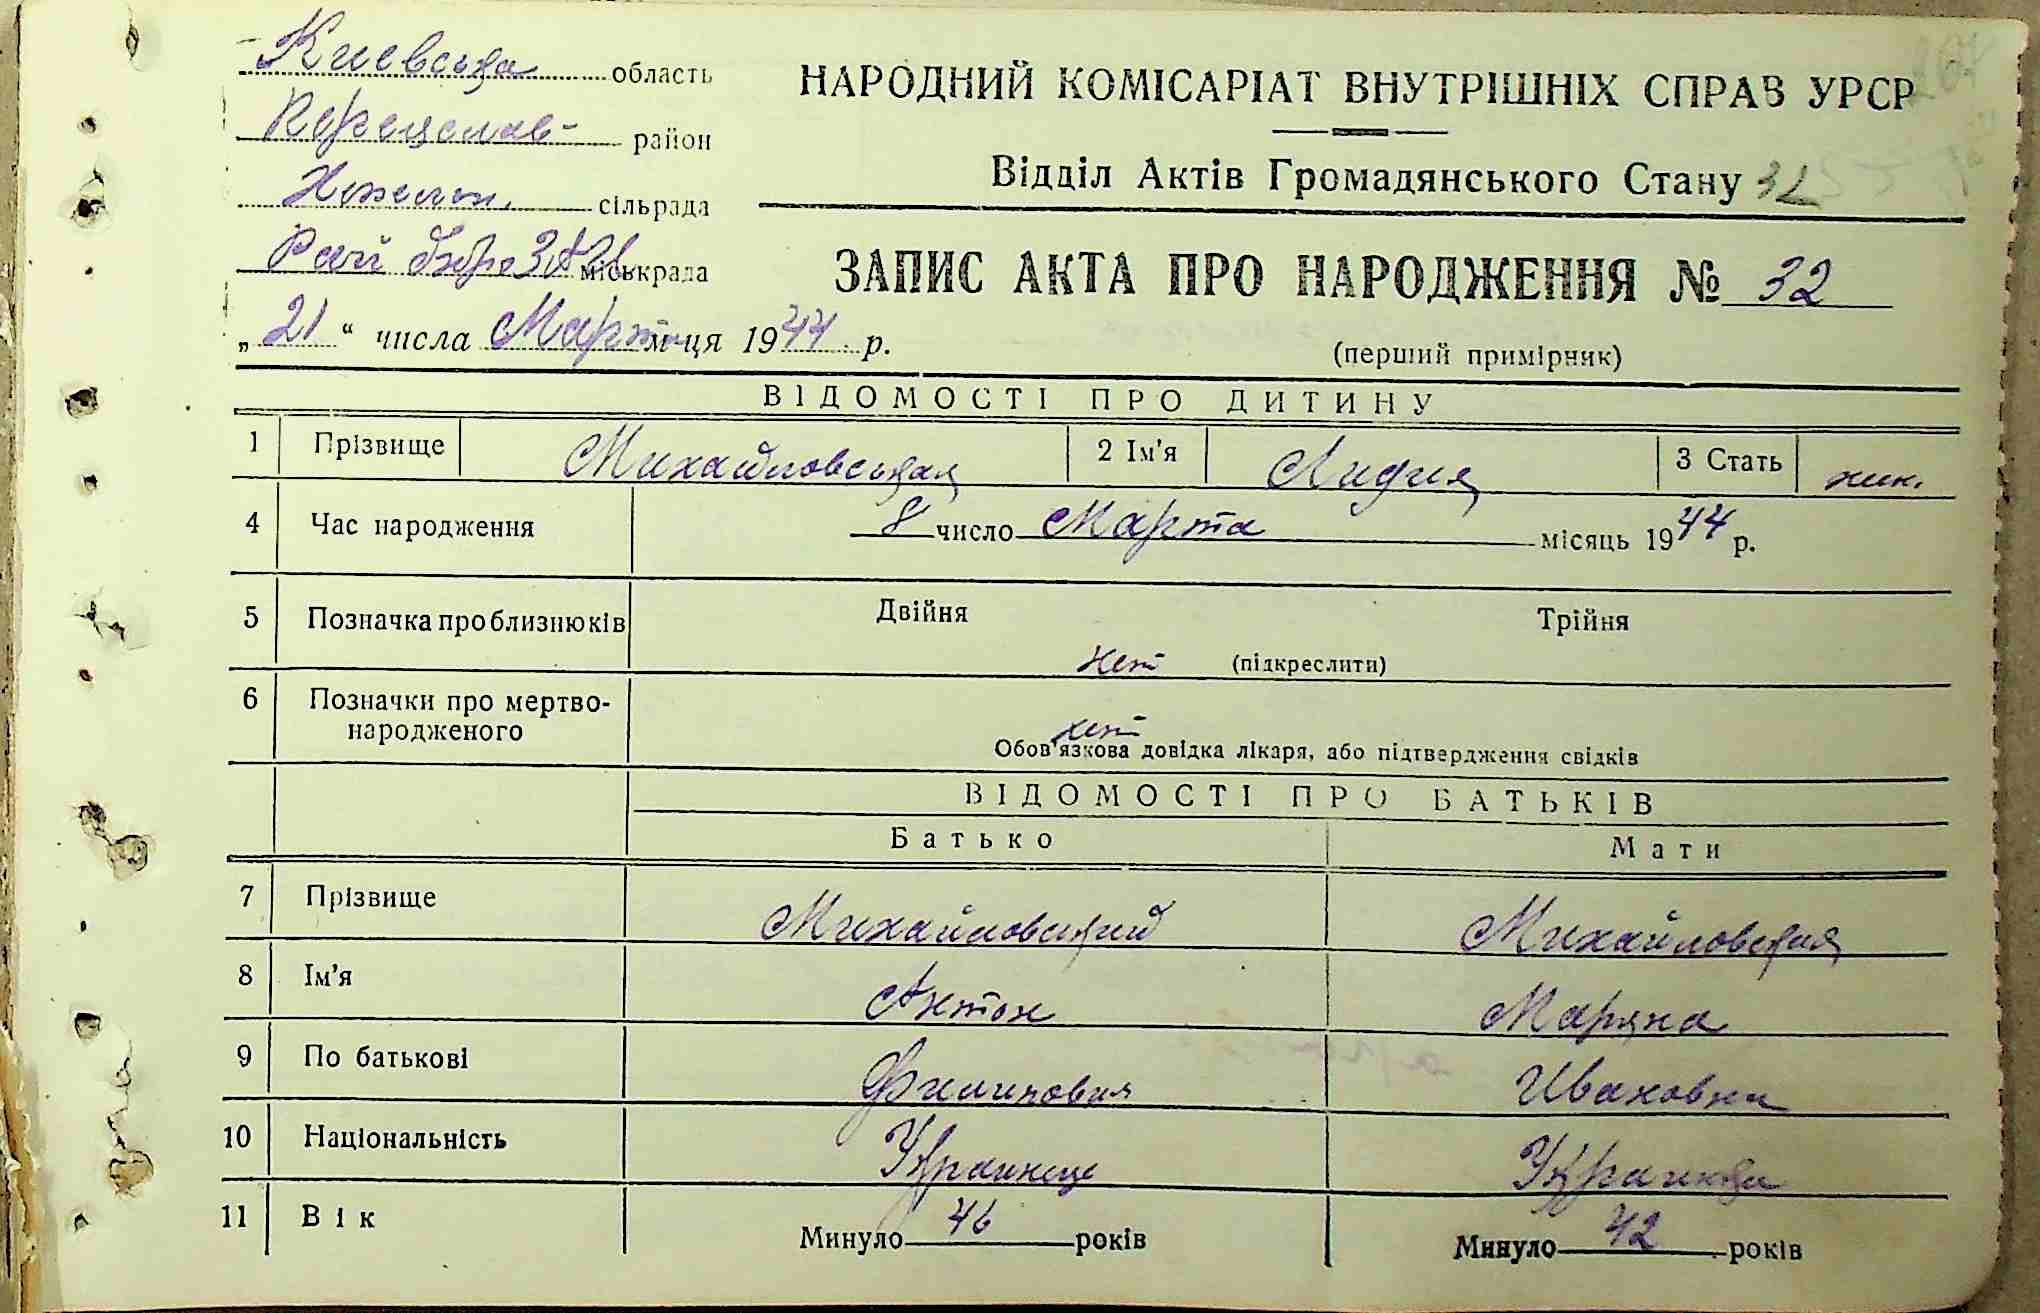 Киевська область
Переяслав- район
сільрада
Рай бюро ЗАГС міськрада
„ 21 “ числа Марта м-ця 1944 р.
НАРОДНИЙ КОМІСАРІАТ ВНУТРІШНІХ СПРАВ УРСР
Відділ Актів Громадянського Стану 32
ЗАПИС АКТА ПРО НАРОДЖЕННЯ № 32
(перший примірник)
ВІДОМОСТІ ПРО ДИТИНУ
1 Прізвище Михайловськая 2 Ім'я Лидия 3 Стать жин.
4 Час народження 8 число Марта місяць 1944 р.
5 Позначка про близнюків Двійня Трійня
нет (підкреслити)
6 Позначки про мертво-
народженого нет
Обов'язкова довідка лікаря, або підтвердження свідків
ВІДОМОСТІ ПРО БАТЬКІВ
Батько Мати
7 Прізвище Михайловский Михайловская
8 Ім'я Антон Маряна
9 По батькові Филипович Ивановна
10 Національність Украинец Украинка
11 Вік Минуло 46 років Минуло 42 років